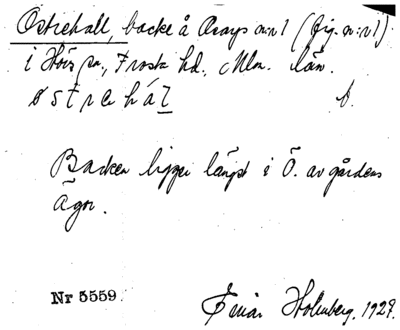 Östrehall, backe å Rays n:r 1 (fig. n:r 1)
i Hörs sn., Frosta hd. Mlm. län.
ö s t r e h á l b.
Backen ligger längst i Ö. av gårdens
ägor.
Nr 5559. Einar Holmberg. 1929.